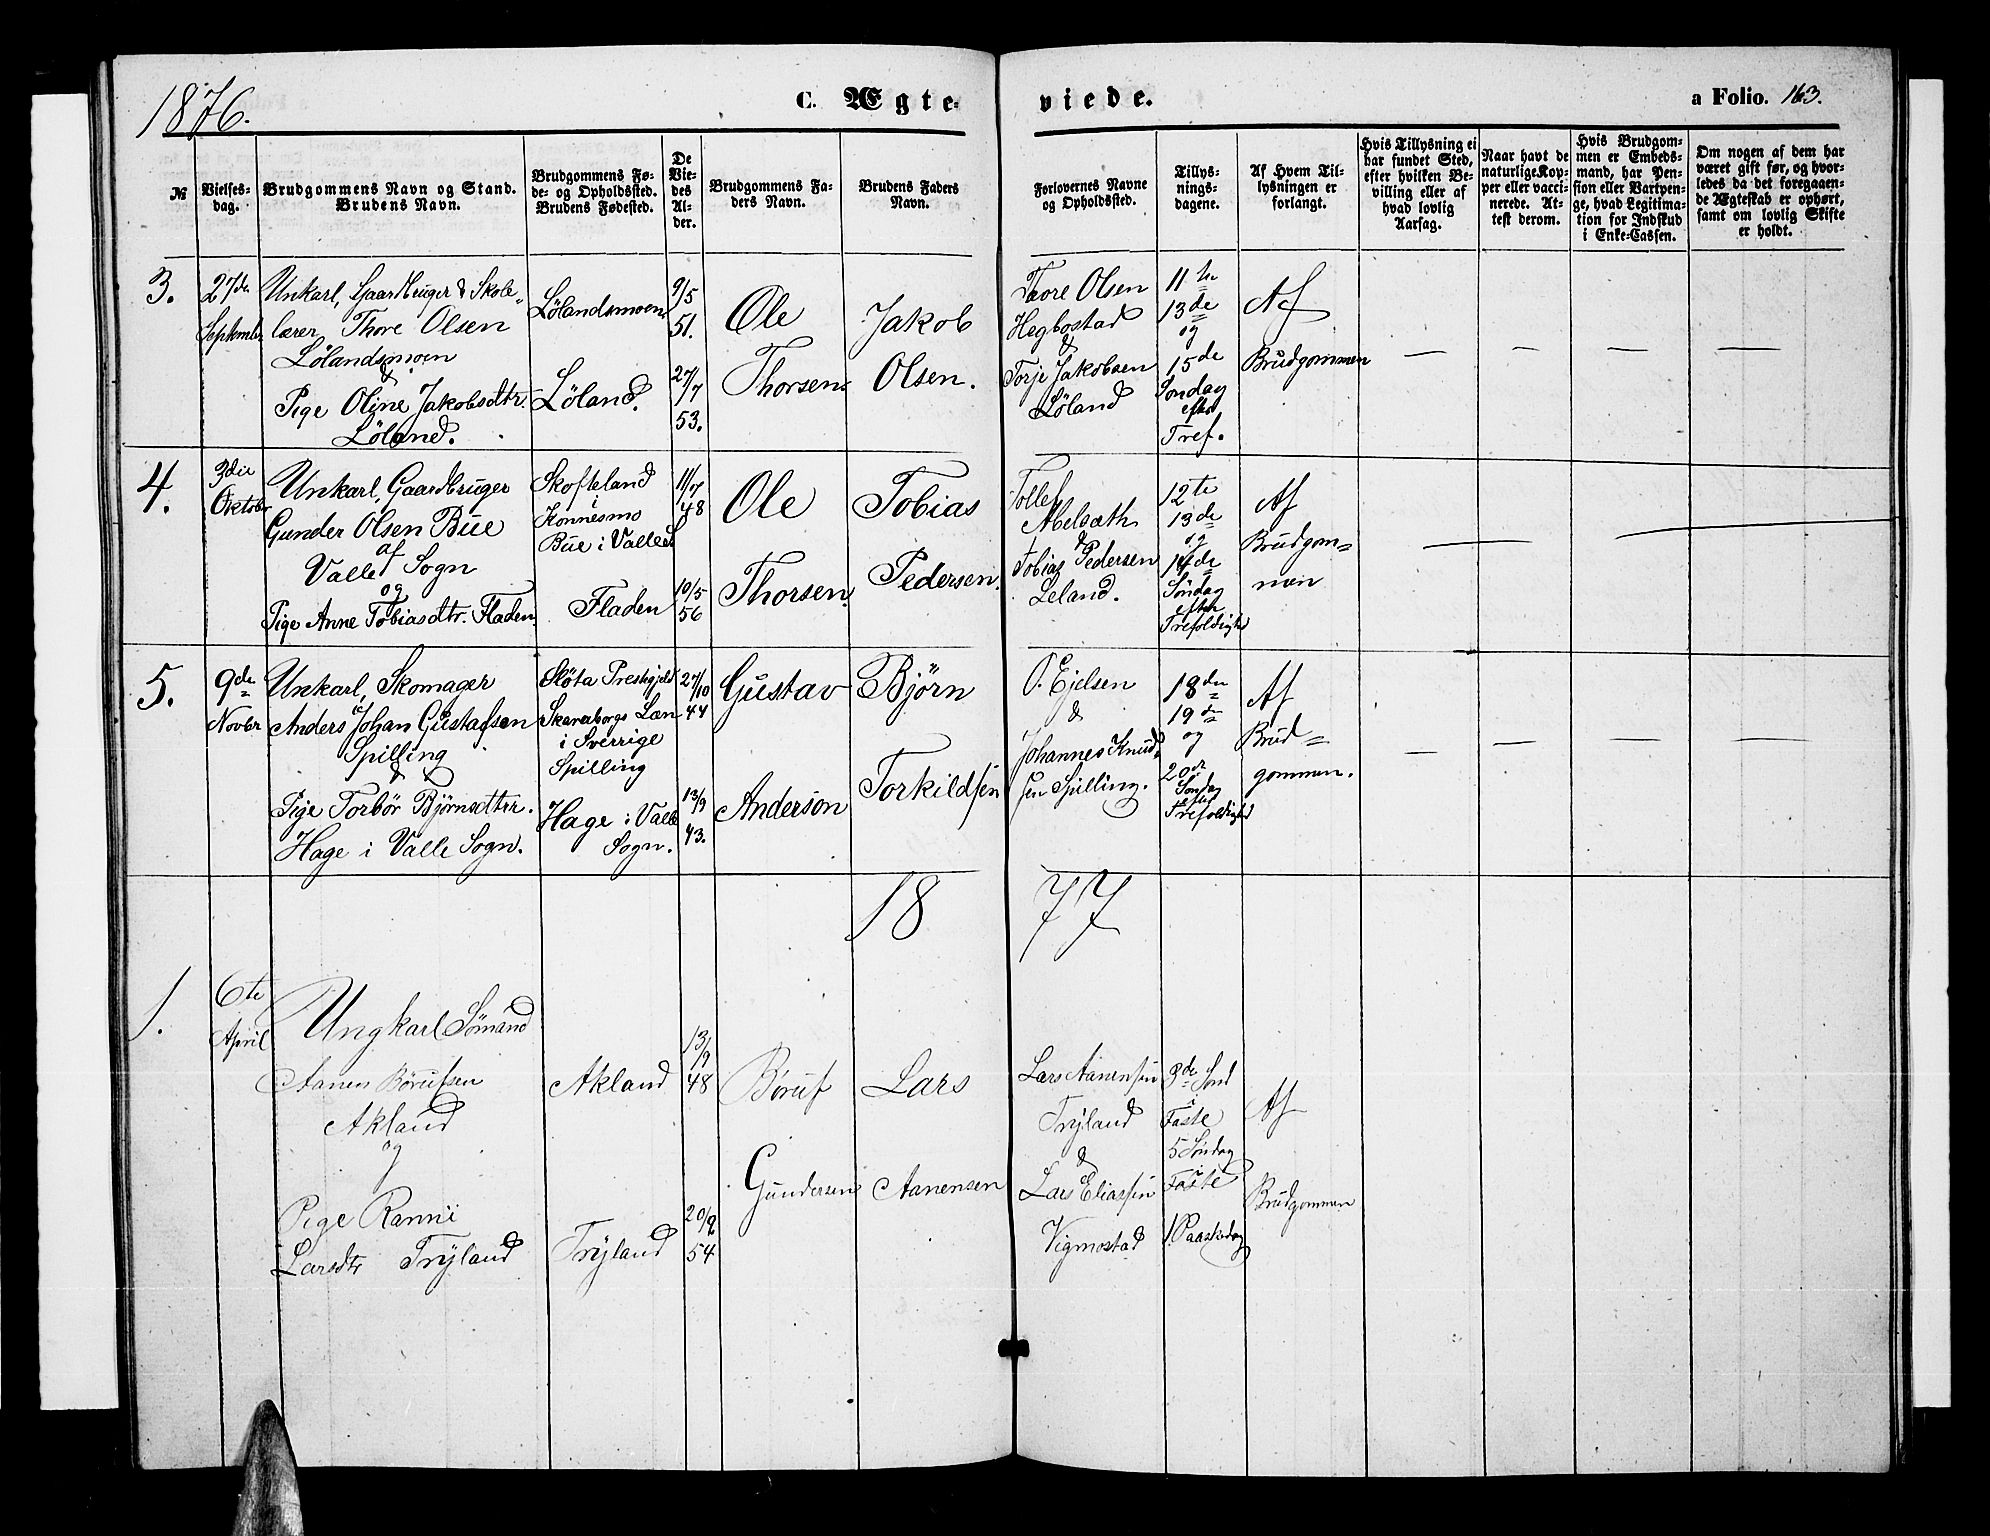 1876.
C. Ægte-
viede.
a Folio. 163.
№
Vielses-
dag.
Brudgommens Navn og Stand.
Brudens Navn.
Brudgommens Fø-
de- og Opholdssted.
Brudens Fødested.
De
Vie-
des
Al-
der.
Brudgommens Fa-
ders Navn.
Brudens Faders
Navn.
Forlovernes Navne
og Opholdssted.
Tillys-
nings-
dagene.
Af Hvem Til-
lysningen er
forlangt.
Hvis Tillysning ei
har fundet Sted,
efter hvilken Be-
villing eller af
hvad lovlig
Aarsag.
Naar havt de
naturlige Kop-
per eller vacci-
nerede. At-
test derom.
Hvis Brudgom-
men er Embeds-
mand, har Pen-
sion eller Vartpen-
ge, hvad Legitima-
tion for Indskud
i Enke-Cassen.
Om nogen af dem har
været gift før, og hvor-
ledes da det foregaaen-
de Ægteskab er ophørt,
samt om lovlig Skifte
er holdt.
3.
27de
Septembr
Unkarl, Gaardbruger & Skole-
lærer Thore Olsen
Lölandsmoen
&
Pige Oline Jakobsdtr.
Löland.
Lölandsmoen
Löland.
9/5
51.
27/7
53.
Ole
Thorsen
Jakob
Olsen.
Taore Olsen
Hegbostad
&
Torje Jakobsen
Löland
11te
13de
og
15de
Söndag
efter
Tref.
Af
Brudgommen
4.
3die
Oktober
Unkarl, Gaardbruger
Gunder Olsen Bue
af
Valle Sogn
og
Pige Anne Tobiasdtr. Fladen
Skofteland
i
Konnesmo
Bue i Valle S
Fladen
11/7
48
10/5
56
Ole
Thorsen.
Tobias
Pedersen.
Tollef
Abelsæth
&
Tobias Pedersen
Leland.
12te
13de
og
14de
Söndag
efter
Trefoldigh
Af
Brudgom=
men
5.
9de
Novbr
Unkarl, Skomager
Anders Johan Gustafsen
Spilling
&
Pige Torbör Björnsdtter.
Hage i Valle Sogn.
Slöta Prestegjeld
Skaraborgs Læn
i Sverrige
Spilling
Hage i Valle
Sogn.
27/10
44
13/9
43.
Gustav
Anderson
Björn
Torkildsen
O. Ejelsen
&
Johannes Knud-
sen Spilling.
18de
19de
og
20de
Söndag
efter
Trefoldighd
Af
Brud=
gommen.
1877
1.
6te
April
Ungkarl Sömand
Aanen Börufsen
Akland
og
Pige Ranni
Larsdtr Tryland
Akland
Tryland
13/9
48
20/2
54
Böruf
Gundersen
Lars
Aanensen
Lars Aanensen
Tryland
&
Lars Eliassen
Vigmostad
3de Sönd
i
Faste
5 Söndag
i
Faste
1. Paaskedag
Af
Brudgommen